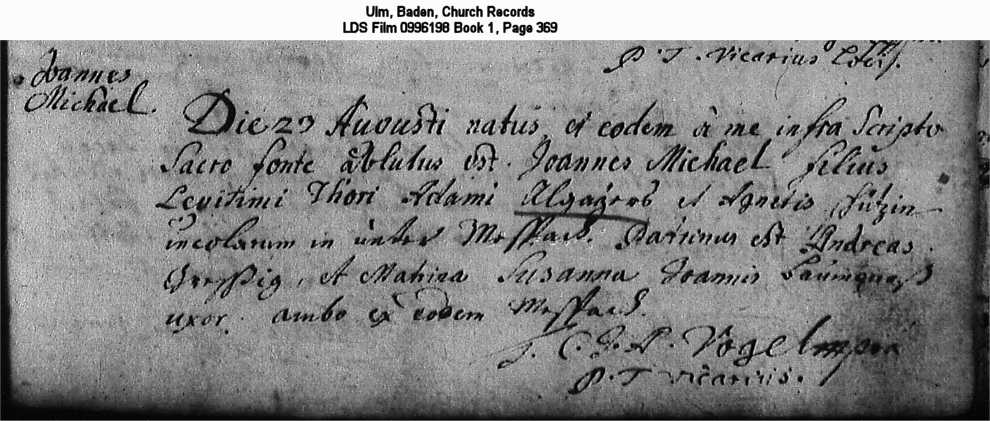 Ulm, Baden, Church Records
LDS Film 0996198 Book 1, Page 369
P. T. Vicarius Loci.
Joannes
Michael.
Die 29 Augusti natus, et eodem à me infra Scripto
Sacro fonte ablutus est. Joannes Michael filius
Legitimi Thori Adami et Agnetis
incolarum in unter Mosspach. Patrinus est Andreas
et Matrina Susanna Joannis
uxor. ambo ex eodem Mosspach.
Vogel mpria
P. T. Vicarius.